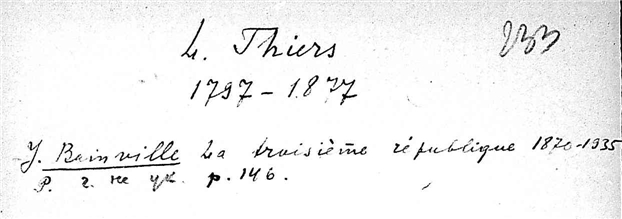 L. Thiers 233
1797-1877
J. Bainville La troisième république 1870-1935
P. г. не ук. p. 146.